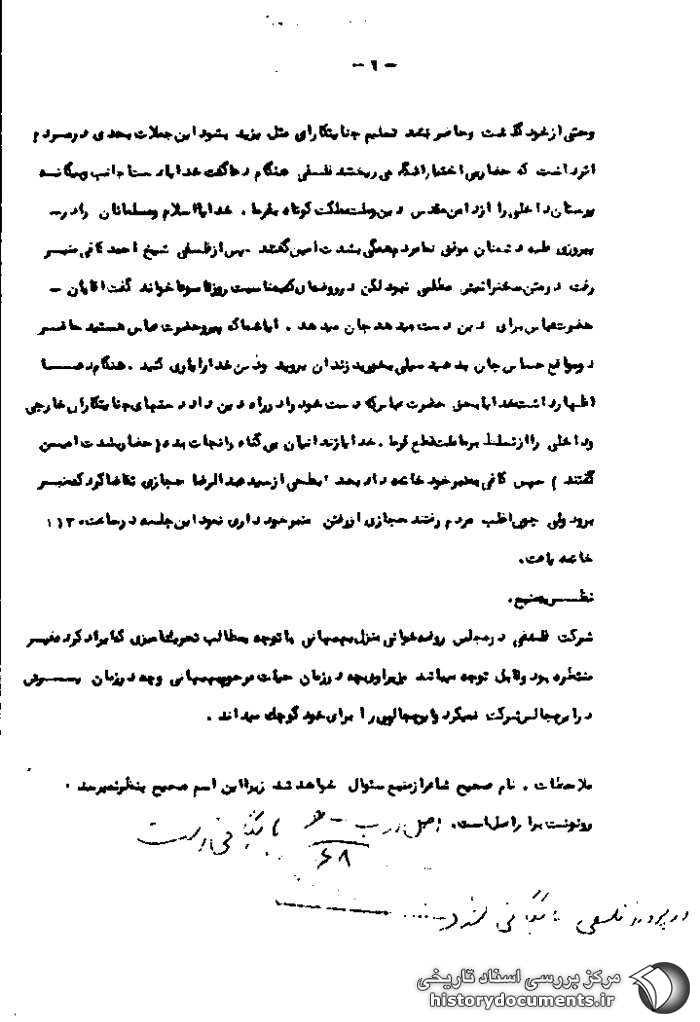 - ٦ -
وحتی از خود گذشت وحاضر نشد تسلیم جنایتکارای مثل یزید بشود این جملات بحدی در مردم
اثر داشت که حضار بی اختیار اشک می ریختند فلسفی هنگام دعا گفت خدایا دست اجانب وبیگانه
پرستان داخلی را از دامن مقدس دین وملت ومملکت کوتاه بفرما . خدایا اسلام ومسلمانان را در -
پیروزی علیه دشمنان موفق نما مردم همگی بشدت امین گفتند سپس از فلسفی شیخ احمد کافی منبر
رفت در متن سخنرانیش مطلبی نبود لکن در روضه ای که بمناسبت روز تاسوعا خواند گفت اقایان -
حضرت عباس برای دین دست میدهد جان میدهد . ایا شما که پیرو حضرت عباس هستید حاضر
در مواقع حساس جان بدهید سیلی بخورید زندان بروید ودین خدا را یاری کنید . هنگام دعا
اظهار داشت خدایا بحق حضرت عباس که دست خود را در راه دین داد دستهای جنایتکاران خارجی
وداخلی را از تسلط بر ما ملت قطع فرما . خدایا زندانیان بی گناه را نجات بده ( حضار بشدت امین
گفتند ) سپس کافی بمنبر خود خاتمه داد بعد ابطحی از سید عبدالرضا حجازی تقاضا کرد که منبر
برود ولی چون اغلب مردم رفتند حجازی از رفتن منبر خود داری نمود این جلسه در ساعت ۱۱۳۰
خاتمه یافت.
نظــر منبع.
شرکت فلسفی در مجلس روضه خوانی منزل بهبهانی با توجه بمطالب تحریک امیزی که ایراد کرد غیر
منتظره بود وقابل توجه میباشد زیرا وی چه در زمان حیات مرحوم بهبهانی وچه در زمان پسرش
در این مجالس شرکت نمیکرد واین مجالس را برای خود کوچک میداند .
ملاحظات . نام صحیح شاعر از منبع سئوال خواهد شد زیرا این اسم صحیح بنظر نمیرسد .
رونوشت برابر اصل است. اصل در
۶۸
در پرونده فلسفی بایگانی شود
مرکز بررسی اسناد تاریخی
historydocuments.ir